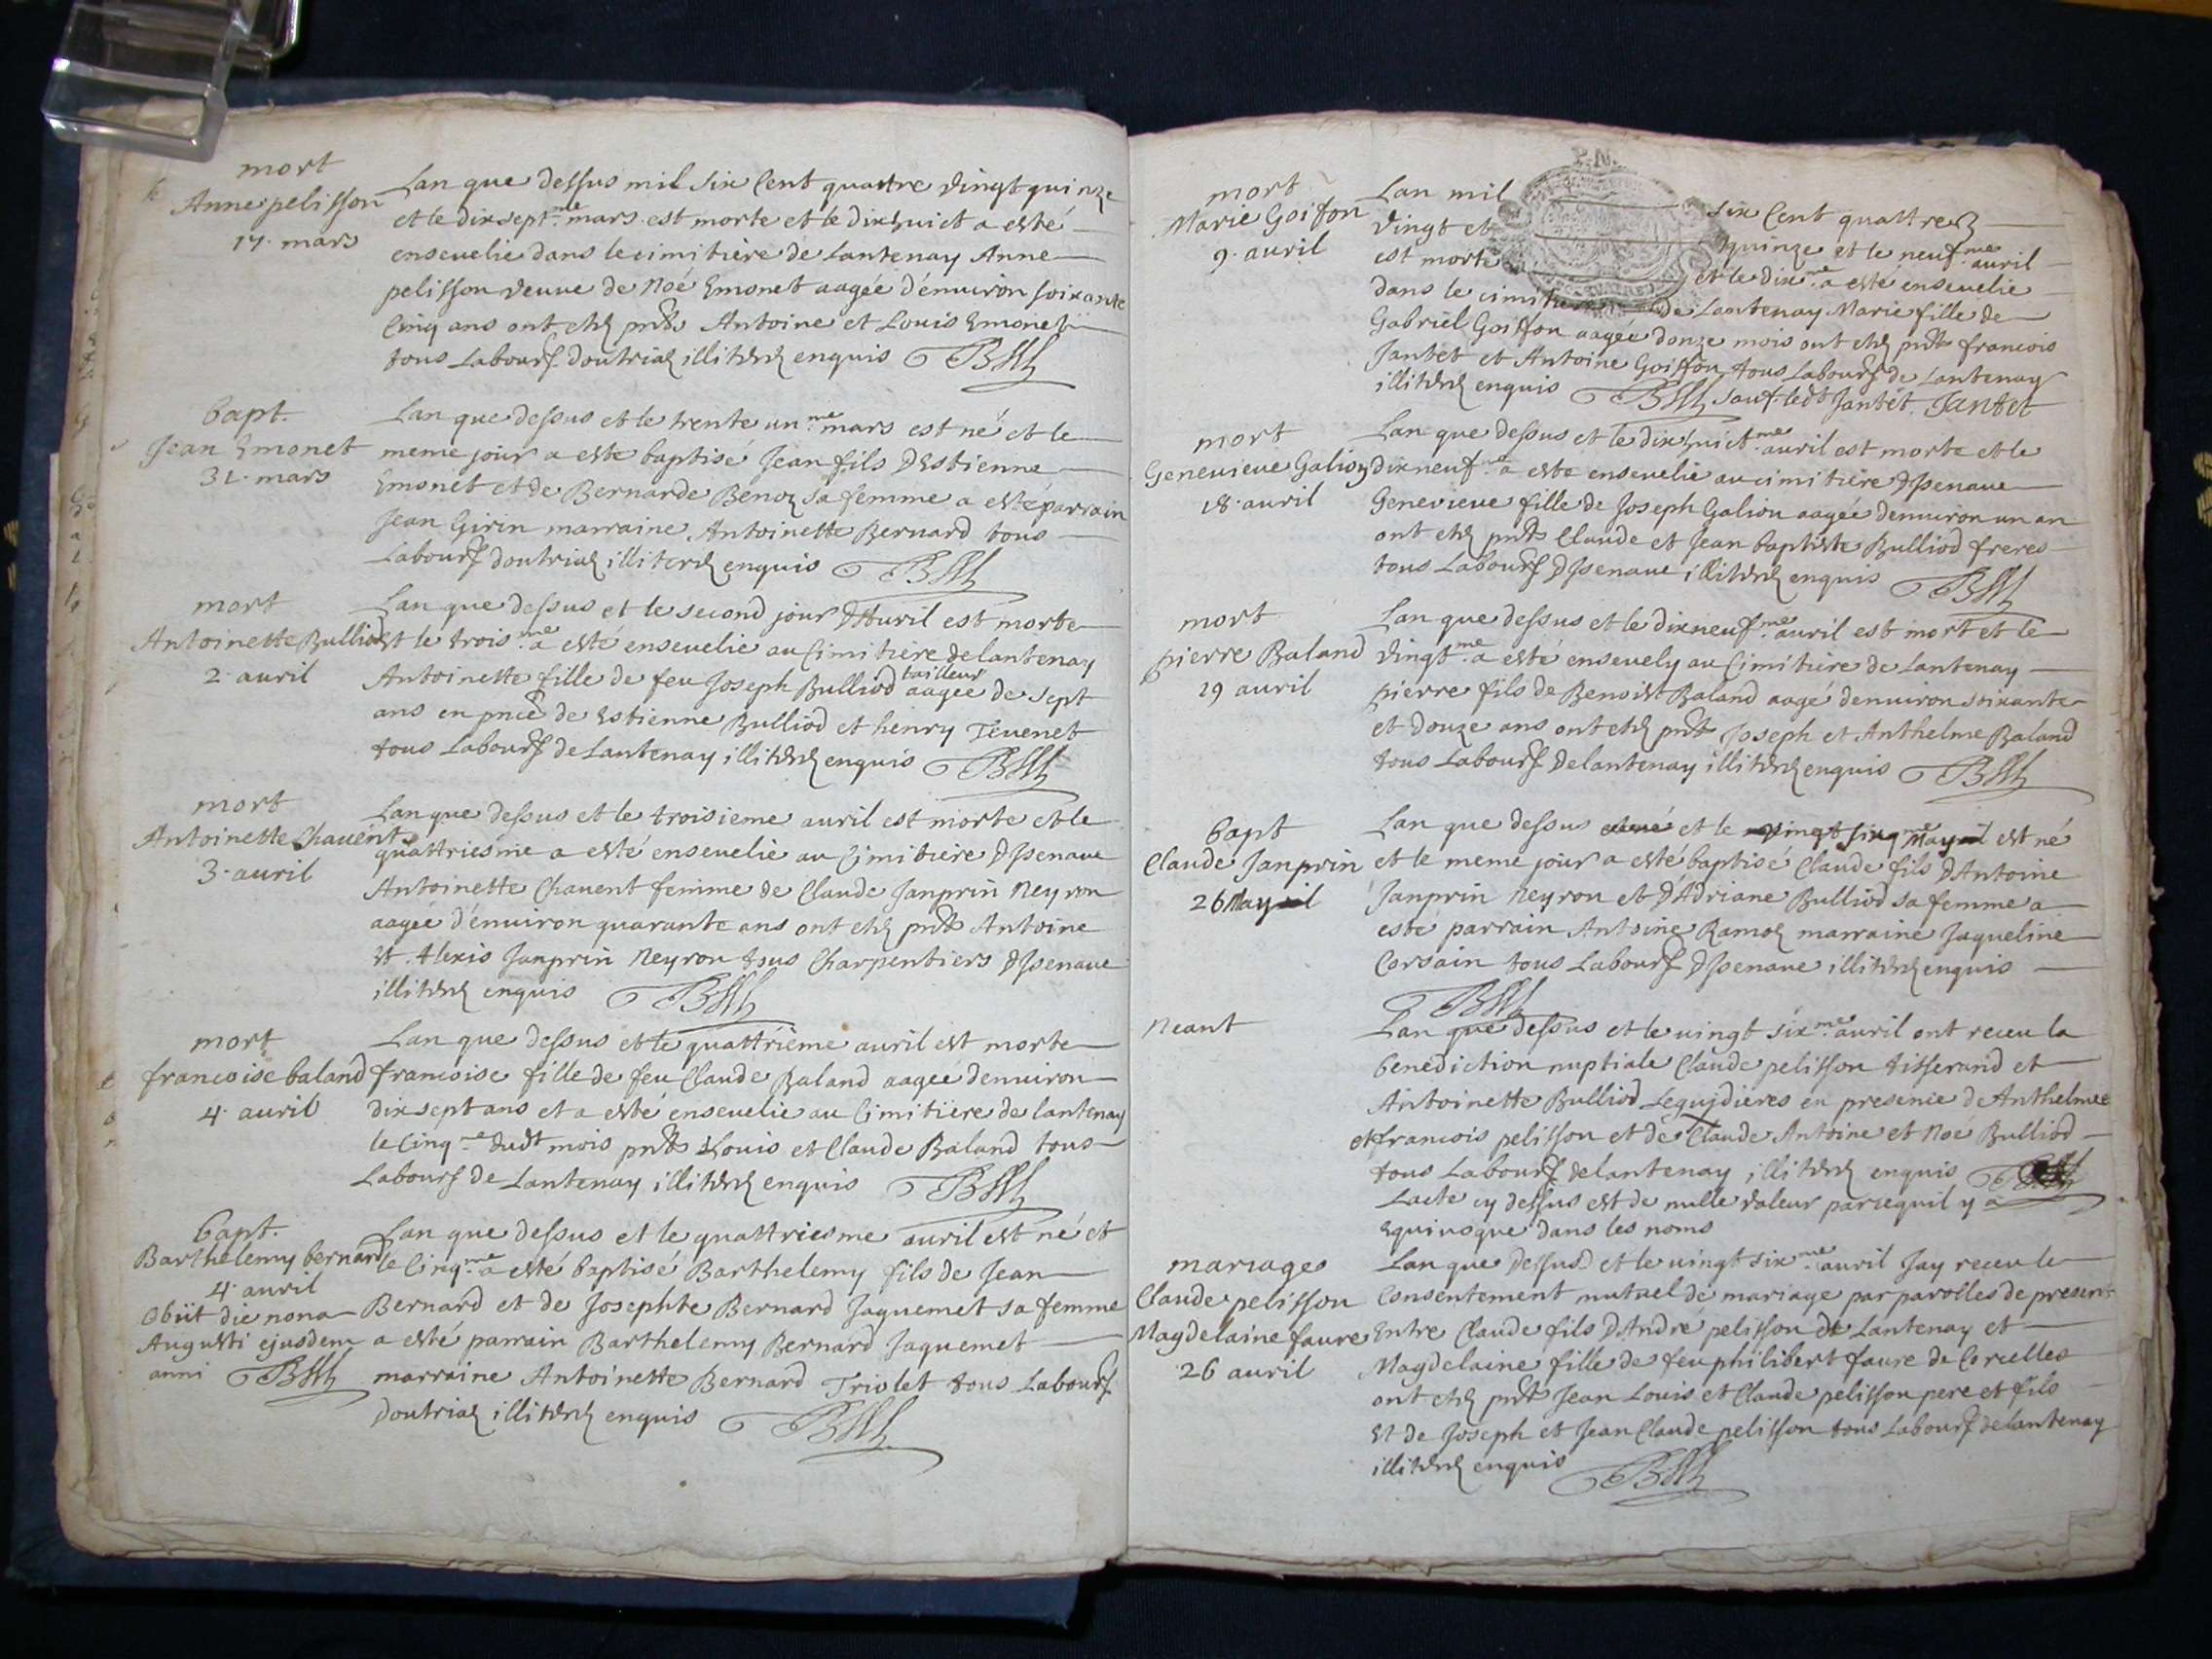 mort
Anne pelisson
17. mars
Lan que dessus mil six Cent quattre vingt quinze
et le dix sept.me mars est morte et le dix huict a esté
ensevelie dans le cimitiere de Lantenay Anne
pelisson veuve de Noé Emonet aagée d'environ soixante
Cinq ans ont estez pnts Antoine et Louis Emonet
tous Labours doutriaz illiterez enquis
bapt.
Jean Emonet
31. mars
Lan que dessus et le trente un.me mars est né et le
meme jour a este baptisé Jean fils DEstienne
Emonet et de Bernarde Benoz sa femme a esté parrain
Jean Girin marraine Antoinette Bernard tous
Labours doutriaz illiterez enquis
mort
Antoinette Bulliod
2. avril
Lan que dessus et le second jour DAvril est morte
et le trois.me a esté ensevelie au Cimitiere de lantenay
Antoinette fille de feu Joseph Bulliod tailleur aagée de sept
ans en pnce de Estienne Bulliod et henry Tevenet
tous Labours de Lantenay illiterez enquis
mort
Antoinette Chavent
3. avril
Lan que dessus et le troisieme avril est morte et le
quattriesme a esté ensevelie au Cimitiere DIsenave
Antoinette Chavent femme de Claude Janprin Neyron
aagée d'environ quarante ans ont estez pnts Antoine
et Alexis Janprin Neyron tous Charpentiers DIsenave
illiterez enquis
mort
francoise baland
4. avril
Lan que dessus et le quattrieme avril est morte
francoise fille de feu Claude Baland aagée denviron
dix sept ans et a esté ensevelie au Cimitiere de lantenay
le Cinq.me dudt mois pnts Louis et Claude Baland tous
Labours de Lantenay illiterez enquis
bapt.
Barthelemy bernard
4. avril
Obiit die nona
Augusti ejusdem
anni
Lan que dessus et le quattriesme avril est né et
le Cinq.me a esté baptisé Barthelemy fils de Jean
Bernard et de Josephte Bernard Jaquemet sa femme
a esté parrain Barthelemy Bernard Jaquemet
marraine Antoinette Bernard Triolet tous Labours
Doutriaz illiterez enquis
mort
Marie Goiffon
9. avril
Lan mil six Cent quattre
vingt et quinze et le neuf.me avril
est morte et le dix.me a esté ensevelie
dans le cimitiere de Lantenay Marie fille de
Gabriel Goiffon aagée donze mois ont estez pnts francois
Jantet et Antoine Goiffon tous Labours de Lantenay
illiterez enquis sauf ledt Jantet. Jantet
mort
Genevieve Galion
18. avril
Lan que dessus et le dix huict.me avril est morte et le
dix neuf.me a este ensevelie au cimitiere DIsenave
Genevieve fille de Joseph Galion aagée denviron un an
ont estez pnts Claude et Jean baptiste Bulliod freres
tous Labours DIsenave illiterez enquis
mort
pierre Baland
19 avril
Lan que dessus et le dix neuf.me avril est mort et le
vingt.me a esté ensevely au Cimitiere de Lantenay
pierre fils de Benoist Baland aagé denviron soixante
et douze ans ont estez pnts Joseph et Anthelme Baland
tous Labours de lantenay illiterez enquis
bapt
Claude Janprin
26 May
Lan que dessus et le vingt sixme May est né
et le meme jour a esté baptisé Claude fils DAntoine
Janprin Neyron et DAdriane Bulliod sa femme a
esté parrain Antoine Ramoz marraine Jaqueline
Corsain tous Labours DIsenave illiterez enquis
Neant
Lan que dessus et le vingt six.me avril ont receu la
benediction nuptiale Claude pelisson tisserand et
Antoinette Bulliod en presence de Anthelme
et francois pelisson et de Claude Antoine et Noé Bulliod
tous Labours de lantenay illiterez enquis
Lacte cy dessus est de nulle valeur parcequil y a
Equivoque dans les noms
mariage
Claude pelisson
Magdelaine faure
26 avril
Lan que dessus et le vingt six.me avril Jay receu le
Consentement mutuel de mariage par parolles de present
Entre Claude fils DAndré pelisson de Lantenay et
Magdelaine fille de feu philibert faure de Corcelles
ont estez pnts Jean Louis et Claude pelisson pere et fils
et de Joseph et Jean Claude pelisson tous Labours de lantenay
illiterez enquis